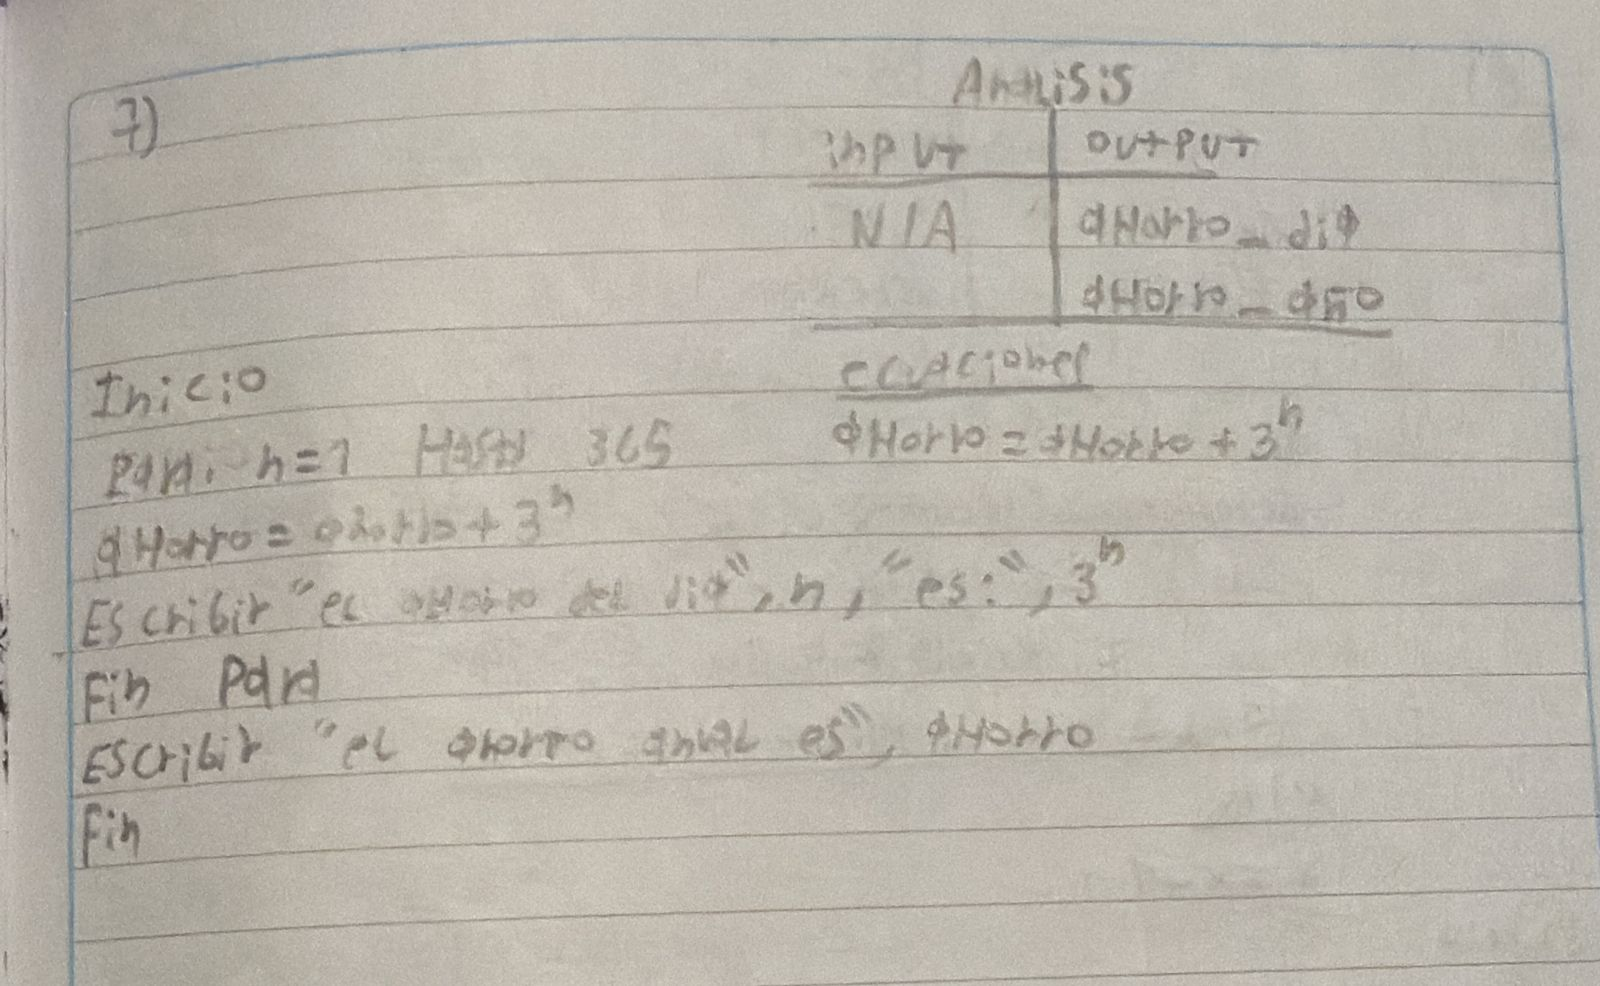 7)
Analisis
input output
N/A aHorro_dia
aHorro_año
ecuaciones
aHorro = aHorro + 3^n
Inicio
Para n=1 Hasta 365
aHorro = ahorro + 3^n
Escribir "el aHorro del dia", n, "es:", 3^n
Fin Para
Escribir "el ahorro anual es", aHorro
Fin